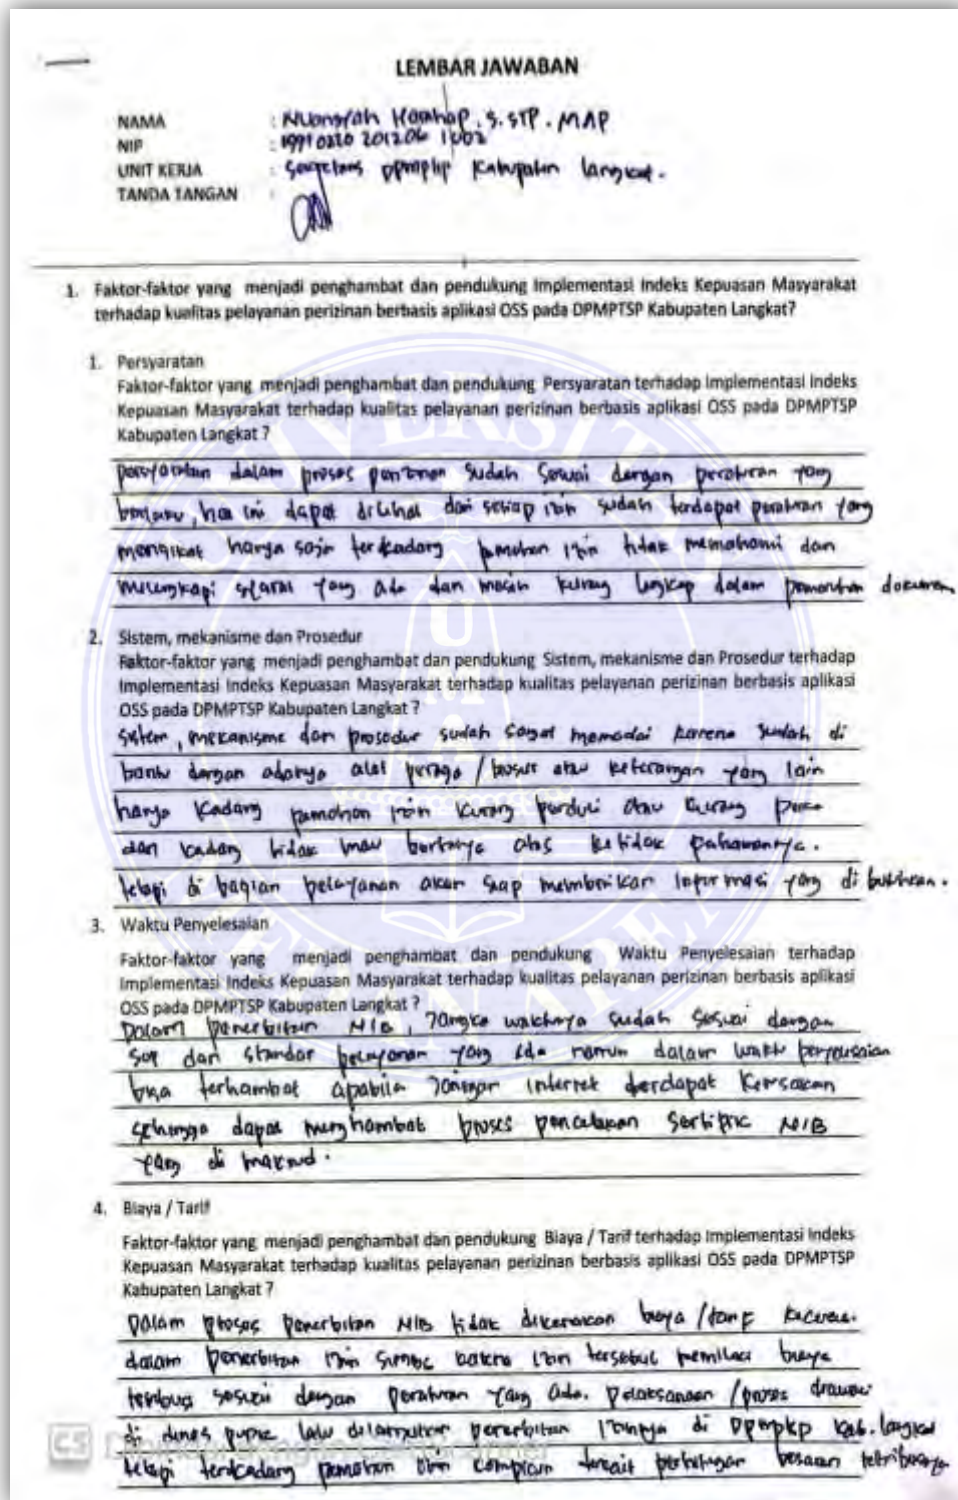 LEMBAR JAWABAN
NAMA : Harahap, S.STP. MAP
NIP : 19910220 201206 1002
UNIT KERJA : Kabupaten Langkat.
TANDA TANGAN :
1. Faktor-faktor yang menjadi penghambat dan pendukung Implementasi Indeks Kepuasan Masyarakat
terhadap kualitas pelayanan perizinan berbasis aplikasi OSS pada DPMPTSP Kabupaten Langkat?
1. Persyaratan
Faktor-faktor yang menjadi penghambat dan pendukung Persyaratan terhadap Implementasi Indeks
Kepuasan Masyarakat terhadap kualitas pelayanan perizinan berbasis aplikasi OSS pada DPMPTSP
Kabupaten Langkat ?
persyaratan dalam proses sudah sesuai dengan peraturan yang
berlaku, hal ini dapat dilihat dari setiap izin sudah terdapat peraturan yang
mengikat hanya saja terkadang pemohon izin tidak memahami dan
melengkapi syarat yang ada dan masih kurang lengkap dalam dokumen
2. Sistem, mekanisme dan Prosedur
Faktor-faktor yang menjadi penghambat dan pendukung Sistem, mekanisme dan Prosedur terhadap
Implementasi Indeks Kepuasan Masyarakat terhadap kualitas pelayanan perizinan berbasis aplikasi
OSS pada DPMPTSP Kabupaten Langkat ?
sistem, mekanisme dan prosedur sudah sangat memadai karena sudah di
bantu dengan adanya alat peraga / brosur atau keterangan yang lain
hanya kadang pemohon izin kurang perduli atau kurang
dan kadang tidak mau bertanya atas ketidak pahamannya.
tetapi di bagian pelayanan akan siap memberikan informasi yang di butuhkan.
3. Waktu Penyelesaian
Faktor-faktor yang menjadi penghambat dan pendukung Waktu Penyelesaian terhadap
Implementasi Indeks Kepuasan Masyarakat terhadap kualitas pelayanan perizinan berbasis aplikasi
OSS pada DPMPTSP Kabupaten Langkat ?
Dalam penerbitan NIB, jangka waktunya sudah sesuai dengan
sop dan standar pelayanan yang ada namun dalam waktu penyelesaian
bisa terhambat apabila jaringan internet terdapat kerusakan
sehingga dapat menghambat proses pencetakan NIB
yang di maksud.
4. Biaya / Tarif
Faktor-faktor yang menjadi penghambat dan pendukung Biaya / Tarif terhadap Implementasi Indeks
Kepuasan Masyarakat terhadap kualitas pelayanan perizinan berbasis aplikasi OSS pada DPMPTSP
Kabupaten Langkat ?
Dalam proses penerbitan NIB tidak dikenakan biaya / tarif kecuali.
dalam penerbitan izin izin tersebut memiliki biaya
sesuai dengan peraturan yang ada. Pelaksanaan / proses
di dinas lalu dilanjutkan penerbitan izinnya di Kab. Langkat
tetapi terkadang pemohon izin complain terkait perhitungan besaran retribusinya
CS